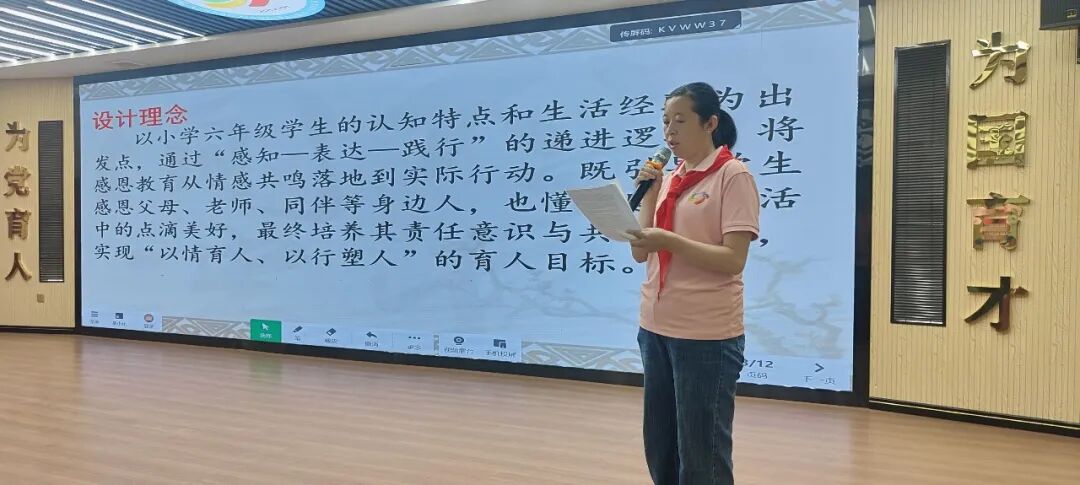 传屏码: KVWW37
设计理念
以小学六年级学生的认知特点和生活经 为出
发点，通过“感知—表达—践行”的递进逻 将
感恩教育从情感共鸣落地到实际行动。既引 生
感恩父母、老师、同伴等身边人，也懂 活
中的点滴美好，最终培养其责任意识与共 ，
实现“以情育人、以行塑人”的育人目标。
为党育人
为国育才
选择
笔
更多
3/12
页码
下一页